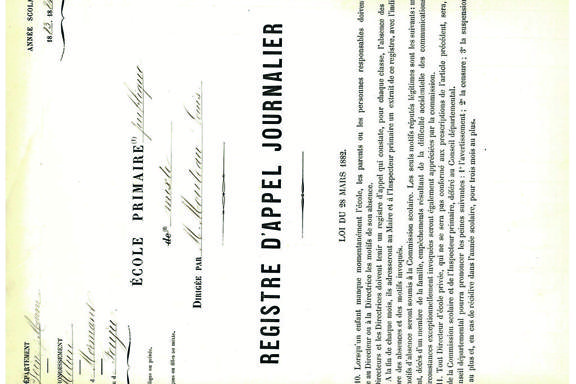 ANNÉE SCOLA
DÉPARTEMENT
ÉCOLE PRIMAIRE (1) publique
de mixte
DIRIGÉE PAR M
REGISTRE D'APPEL JOURNALIER
LOI DU 28 MARS 1882.
10. Lorsqu'un enfant manque momentanément l'école, les parents ou les personnes responsables doivent
au Directeur ou à la Directrice les motifs de son absence.
Directeurs et les Directrices doivent tenir un registre d'appel qui constate, pour chaque classe, l'absence des
A la fin de chaque mois, ils adresseront au Maire et à l'Inspecteur primaire un extrait de ce registre, avec l'indi
des absences et des motifs invoqués.
motifs d'absence seront soumis à la Commission scolaire. Les seuls motifs réputés légitimes sont les suivants :
décès d'un membre de la famille, empêchements résultant de la difficulté accidentelle des communications
circonstances exceptionnellement invoquées seront également appréciées par la commission.
11. Tout Directeur d'école privée, qui ne se sera pas conformé aux prescriptions de l'article précédent, sera,
la Commission scolaire et de l'Inspecteur primaire, déféré au Conseil départemental.
Conseil départemental pourra prononcer les peines suivantes : 1° l'avertissement ; 2° la censure ; 3° la suspension
au plus et, en cas de récidive dans l'année scolaire, pour trois mois au plus.